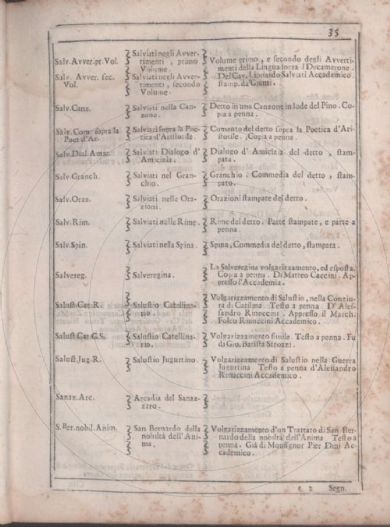 35
Salv. Avver. pr. Vol. Salviati negli Avvertimenti, primo Volume. Volume primo, e secondo degli Avvertimenti della Lingua sopra 'l Decamerone.
Salv. Avver. sec. Vol. Salviati negli Avvertimenti, secondo Volume. Del Cav. Lionardo Salviati Accademico stamp. da Giunti.
Salv. Canz. Salviati nella Canzone. Detto in una Canzone in lode del Pino. Copia a penna.
Salv. Com. sopra la Poet. d'Ar. Salviati sopra la Poetica d'Aristotile. Comento del detto sopra la Poetica d'Aristotile. Copia a penna.
Salv. Dial. Amic. Salviati Dialogo d'Amicizia. Dialogo d'Amicizia del detto, stampata.
Salv. Granch. Salviati nel Granchio. Granchio. Commedia del detto, stampato.
Salv. Oraz. Salviati nelle Orazioni. Orazioni stampate del detto.
Salv. Rim. Salviati nelle Rime. Rime del detto. Parte stampate, e parte a penna.
Salv. Spin. Salviati nella Spina. Spina, Commedia del detto, stampata.
Salvereg. Salveregina. La Salveregina volgarizzamento, ed esposta. Copia a penna. Di Matteo Caccini. Appresso l'Accademia.
Salust. Cat. R. Salustio Catellinario. Volgarizzamento di Salustio, nella Congiura di Catilina. Testo a penna. D'Alessandro Rinuccini. Appresso il March. Folco Rinuccini Accademico.
Salust. Cat. G.S. Salustio Catellinario. Volgarizzamento simile. Testo a penna. Fu di Gio. Batista Strozzi.
Salust. Jug. R. Salustio Jugurtino. Volgarizzamento di Salustio nella Guerra Jugurtina. Testo a penna d'Alessandro Rinuccini Accademico.
Sanaz. Arc. Arcadia del Sanazzero.
S. Ber. nobil. Anim. San Bernardo della nobiltà dell'Anima. Volgarizzamento d'un Trattato di San Bernardo della nobiltà dell'Anima. Testo a penna. Già di Monsignor Pier Dini Accademico.
Segn.